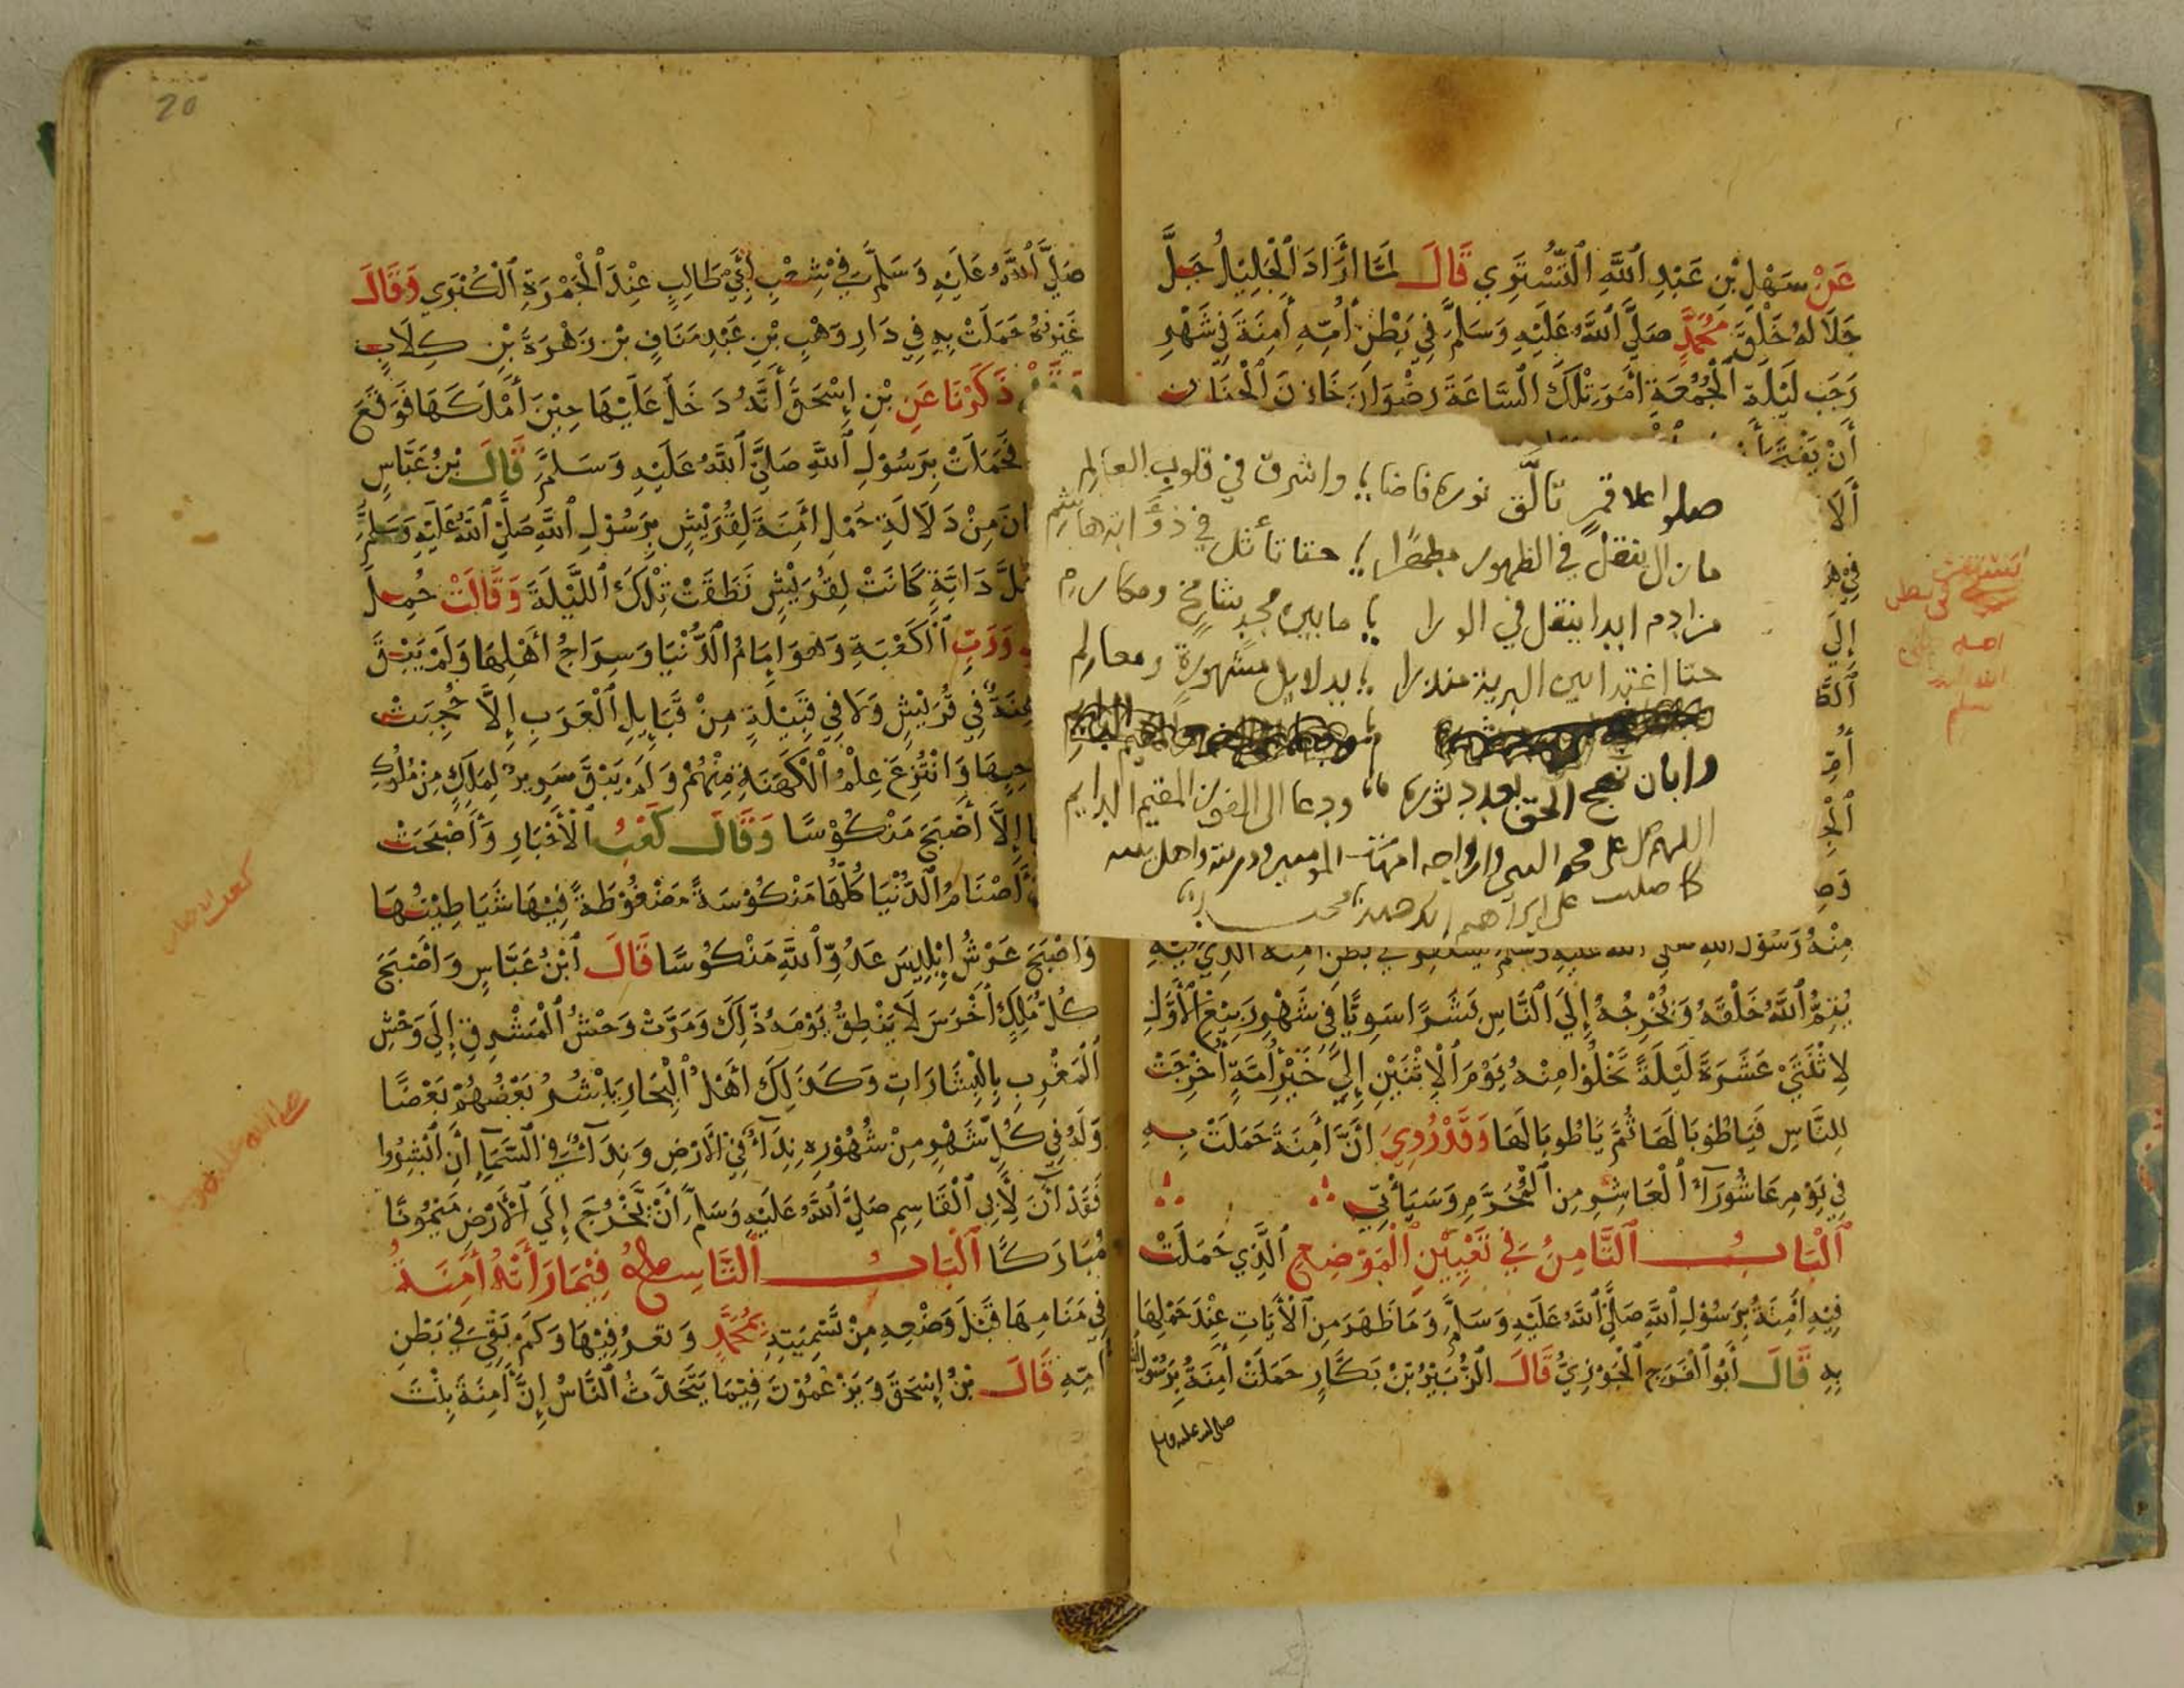 عَنْ سَهْلِ بْنِ عَبْدِ ٱللَّهِ ٱلتُّسْتَرِي قَالَ لَمَّا أَرَادَ ٱلْجَلِيلُ جَلَّ
جَلَالهُ خَلْقَ مُحَمَّدٍ صَلَّى ٱللَّهُ عَلَيْهِ وَسَلَّمَ فِي بَطْنِ أُمِّهِ أَمِنَةَ فِي شَهْرِ
رَجَب لَيْلَة ٱلْجُمُعَةِ أَمَرَ تِلْكَ ٱلسَّاعَةَ رِضْوَانَ خَازِنَ ٱلْجِنَانِ
أَنْ يَفْتَحَ
أَلَا
إِلَى
مِنْهُ رَسُولَ اللهِ صَلَّى الله عَلَيْهِ وَسَلَّمَ يَسْتَقِر فِي بَطْنِ أَمِنَة الَّذِي فِيهِ
يُتِمُّ ٱللَّهُ خَلْقَهُ وَيُخْرِجُهُ إِلَى ٱلنَّاسِ بَشَرًا سَوِيًّا فِي شَهْرِ رَبِيْعِ ٱلْأَوَّلِ
لِاثْنَتَيْ عَشَرَةَ لَيْلَةً تَخْلُوا مِنْهُ يَوْمَ ٱلْاِثْنَيْنِ إِلَى خَيْرِ أُمَّةٍ أُخْرِجَتْ
لِلنَّاسِ فَيَا طُوبَا لَهَا ثُمَّ يَا طُوبَا لَهَا وَقَدْ رُوِيَ أَنَّ أَمِنَةَ حَمَلَتْ بِهِ
فِي يَوْمِ عَاشُورَآءَ ٱلْعَاشِرِ مِنَ ٱلْمُحَرَّمِ وَسَيَأْتِي
ٱلْبَابُ ٱلثَّامِنُ فِي تَعْيِيْنِ ٱلْمَوْضِعِ ٱلَّذِي حَمَلَتْ
فِيْهِ أَمِنَةُ بِرَسُوْلِ ٱللَّهِ صَلَّى ٱللَّهُ عَلَيْهِ وَسَلَّمَ وَمَا ظَهَرَ مِنَ ٱلْأَيَاتِ عِنْدَ حَمْلِهَا
بِهِ قَالَ أَبُو ٱلْفَرَجِ ٱلْجَوْزِيُّ قَالَ ٱلزُّبَيْرُ بْنُ بَكَّارٍ حَمَلَتْ أَمِنَةُ بِرَسُولِ الله
صلى الله عليه وسلم
يستقر في بطن
امنه
صلوا علا قمرٍ تألَّق نوره فاضا؛ واشرق في قلوب العالم
مازال ينقل في الظهور مطهرًا؛ حتا تأثل في ذوَّابة هاشم
مزادم ابدا ينقل في الورا؛ مابين مجدٍ شامخ ومكارم
حتا اغتدا بين البرية منذرا؛ بدلايلٍ مشهورةٍ ومعالم
وابان نهج الحق بعد دثوره ؛ ودعا الى الفوز المقيم الدايم
اللهم صل على محمد النبي وازواجه امهات المومنين وذريته واهل بيته
كما صليت على ابراهيم انك حميد مجيد
20
صَلَّى ٱللَّهُ عَلَيْهِ وَسَلَّمَ فِي شِعْبِ أَبِي طَالِبٍ عِنْدَ ٱلْجَمْرَةِ ٱلْكُبْرَي وَقَالَ
غَيْرُهُ حَمَلَتْ بِهِ فِي دَارِ وَهْبِ بْنِ عَبْدِ مَنَافٍ بْن زُهْرَةَ بْنِ كِلَابٍ
وَقَدْ ذَكَرْنَا عَنِ بْنِ إِسْحَقَ أَنَّهُ دَخَلَ عَلَيْهَا حِيْنَ أَمْلَكَهَا فَوَقَعَ
فَحَمَلَتْ بِرَسُوْلِ ٱللَّهِ صَلَّى ٱللَّهُ عَلَيْهِ وَسَلَّمَ قَالَ بْنُ عَبَّاسٍ
انَ مِنْ دَلَالَةِ حَمْلِ أَمِنَةَ لِقُرَيْشٍ بِرَسُوْلِ ٱللَّهِ صَلَّى ٱللَّهُ عَلَيْهِ وَسَلَّمَ
كُلَّ دَابَّةٍ كَانَتْ لِقُرَيْشٍ نَطَقَتْ تِلْكَ ٱللَّيْلَةَ وَقَالَتْ حُمِلَ
وَرَبِّ ٱلْكَعْبَةِ وَهُوَ إِمَامُ ٱلدُّنْيَا وَسِرَاجُ أَهْلِهَا وَلَمْ يَبْقَ
فِي قُرَيْشٍ وَلَا فِي قَبِيْلَةٍ مِنْ قَبَايِلِ ٱلْعَرَبِ إِلَّا حُجِبَتْ
وَانْتُزِعَ عِلْمُ ٱلْكَهَنَةِ مِنْهُمْ وَلَمْ يَبْقَ سَرِيرٌ لِمَلِكٍ مِنْ مُلُوكِ
إِلَّا أَصْبَحَ مَنْكُوْسًا وَقَالَ كَعْبُ ٱلْأَحْبَارِ وَأَصْبَحَتْ
أَصْنَامُ ٱلدُّنْيَا كُلُّهَا مَنْكُوْسَةً مَضْغُوْطَةً فِيْهَا شَيَاطِيْنُهَا
وَأَصْبَحَ عَرْشُ إِبْلِيْسَ عَدُوِّ ٱللَّهِ مَنْكُوْسًا قَالَ ٱبْنُ عَبَّاسٍ وَأَصْبَحَ
كُلُّ مَلِكٍ أَخْرَسَ لَا يَنْطِقُ يَوْمَهُ ذَلِكَ وَمَرَّتْ وَحْشُ ٱلْمَشْرِقِ إِلَى وَحْشِ
ٱلْمَغْرِبِ بِالْبِشَارَاتِ وَكَذَلِكَ أَهْلُ ٱلْبِحَارِ يُبْشُرُ بَعْضُهُمْ بَعْضًا
وَلَهُ فِي كُلِّ شَهْرٍ مِنْ شُهُوْرِهِ نِدَآءٌ فِي ٱلْأَرْضِ وَنِدَآءٌ فِي ٱلسَّمَآءِ أَنْ ٱبْشِرُوا
فَقَدْ آنَ لِأَبِي ٱلْقَاسِمِ صَلَّى ٱللَّهُ عَلَيْهِ وَسَلَّمَ أَنْ يَخْرُجَ إِلَى ٱلْأَرْضِ مَيْمُونًا
مُبَارَكًا ٱلْبَابُ ٱلتَّاسِعُ فِيْمَا رَأَتْهُ أَمِنَةُ
فِي مَنَامِهَا قَبْلَ وَضْعِهِ مِنْ تَسْمِيَتِهِ بِمُحَمَّدٍ وَتَعَرُّفِيْهَا وَكَمْ بَقِيَ فِي بَطْنِ
أُمِّهِ قَالَ بْنُ إِسْحَقَ وَيَزْعُمُوْنَ فِيْمَا يَتَحَدَّثُ ٱلنَّاسُ إِنَّ أَمِنَةَ بِنْتَ
كعب الاحبار
صلى الله عليه وسلم